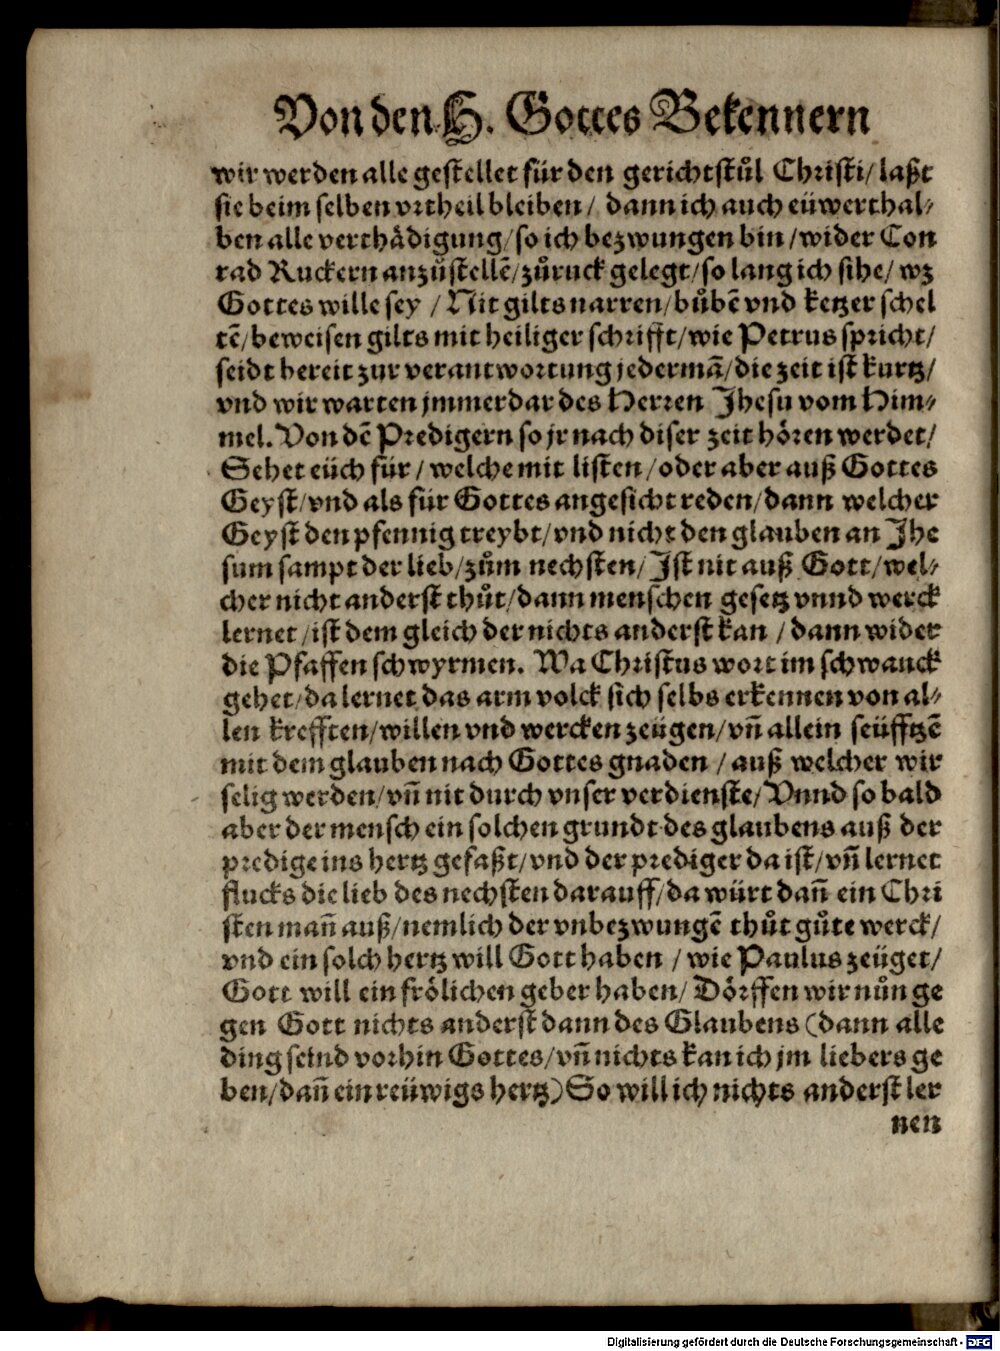 Von den H. Gottes Bekennern
wir werden alle gestellet für den gerichtstůl Christi/ laßt
sie beim selben vrtheil bleiben/ dann ich auch eüwerthal⸗
ben alle verthådigung/ so ich bezwungen bin/ wider Con
rad Ruckern anzůstellẽ/ zůruck gelegt/ so lang ich sihe/ wz
Gottes wille sey / Nit gilts narren/ bůbẽ vnd ketzer schel
tẽ/ beweisen gilts mit heiliger schrifft/ wie Petrus spricht/
seidt bereit zur verantwortung jedermã/ die zeit ist kurtz/
vnd wir warten jmmerdar des Herren Jhesu vom Him⸗
mel. Von dẽ Predigern so jr nach diser zeit hören werdet/
Sehet eüch für/ welche mit listen/ oder aber auß Gottes
Geyst/ vnd als für Gottes angesicht reden/ dann welcher
Geyst den pfennig treybt/ vnd nicht den glauben an Jhe
sum sampt der lieb/ zům nechsten/ Ist nit auß Gott/ wel⸗
cher nicht anderst thůt/ dann menschen gesetz vnnd werck
lernet/ ist dem gleich der nichts anderst kan / dann wider
die Pfaffen schwyrmen. Wa Christus wort im schwanck
gehet/ da lernet das arm volck sich selbs erkennen von al⸗
len krefften/ willen vnd wercken zeügen/ vñ allein seüfftzẽ
mit dem glauben nach Gottes gnaden / auß welcher wir
selig werden/ vñ nit durch vnser verdienste/ Vnnd so bald
aber der mensch ein solchen grundt des glaubens auß der
predige ins hertz gefaßt/ vnd der prediger da ist/ vñ lernet
flucks die lieb des nechsten darauff/ da würt dañ ein Chri
sten mañ auß/ nemlich der vnbezwungẽ thůt gůte werck/
vnd ein solch hertz will Gott haben / wie Paulus zeüget/
Gott will ein frölichen geber haben/ Dörffen wir nůn ge
gen Gott nichts anderst dann des Glaubens (dann alle
ding seind vorhin Gottes/ vñ nichts kan ich jm liebers ge
ben/ dañ ein reüwigs hertz) So will ich nichts anderst ler
nen
Digitalisierung gefördert durch die Deutsche Forschungsgemeinschaft - DFG